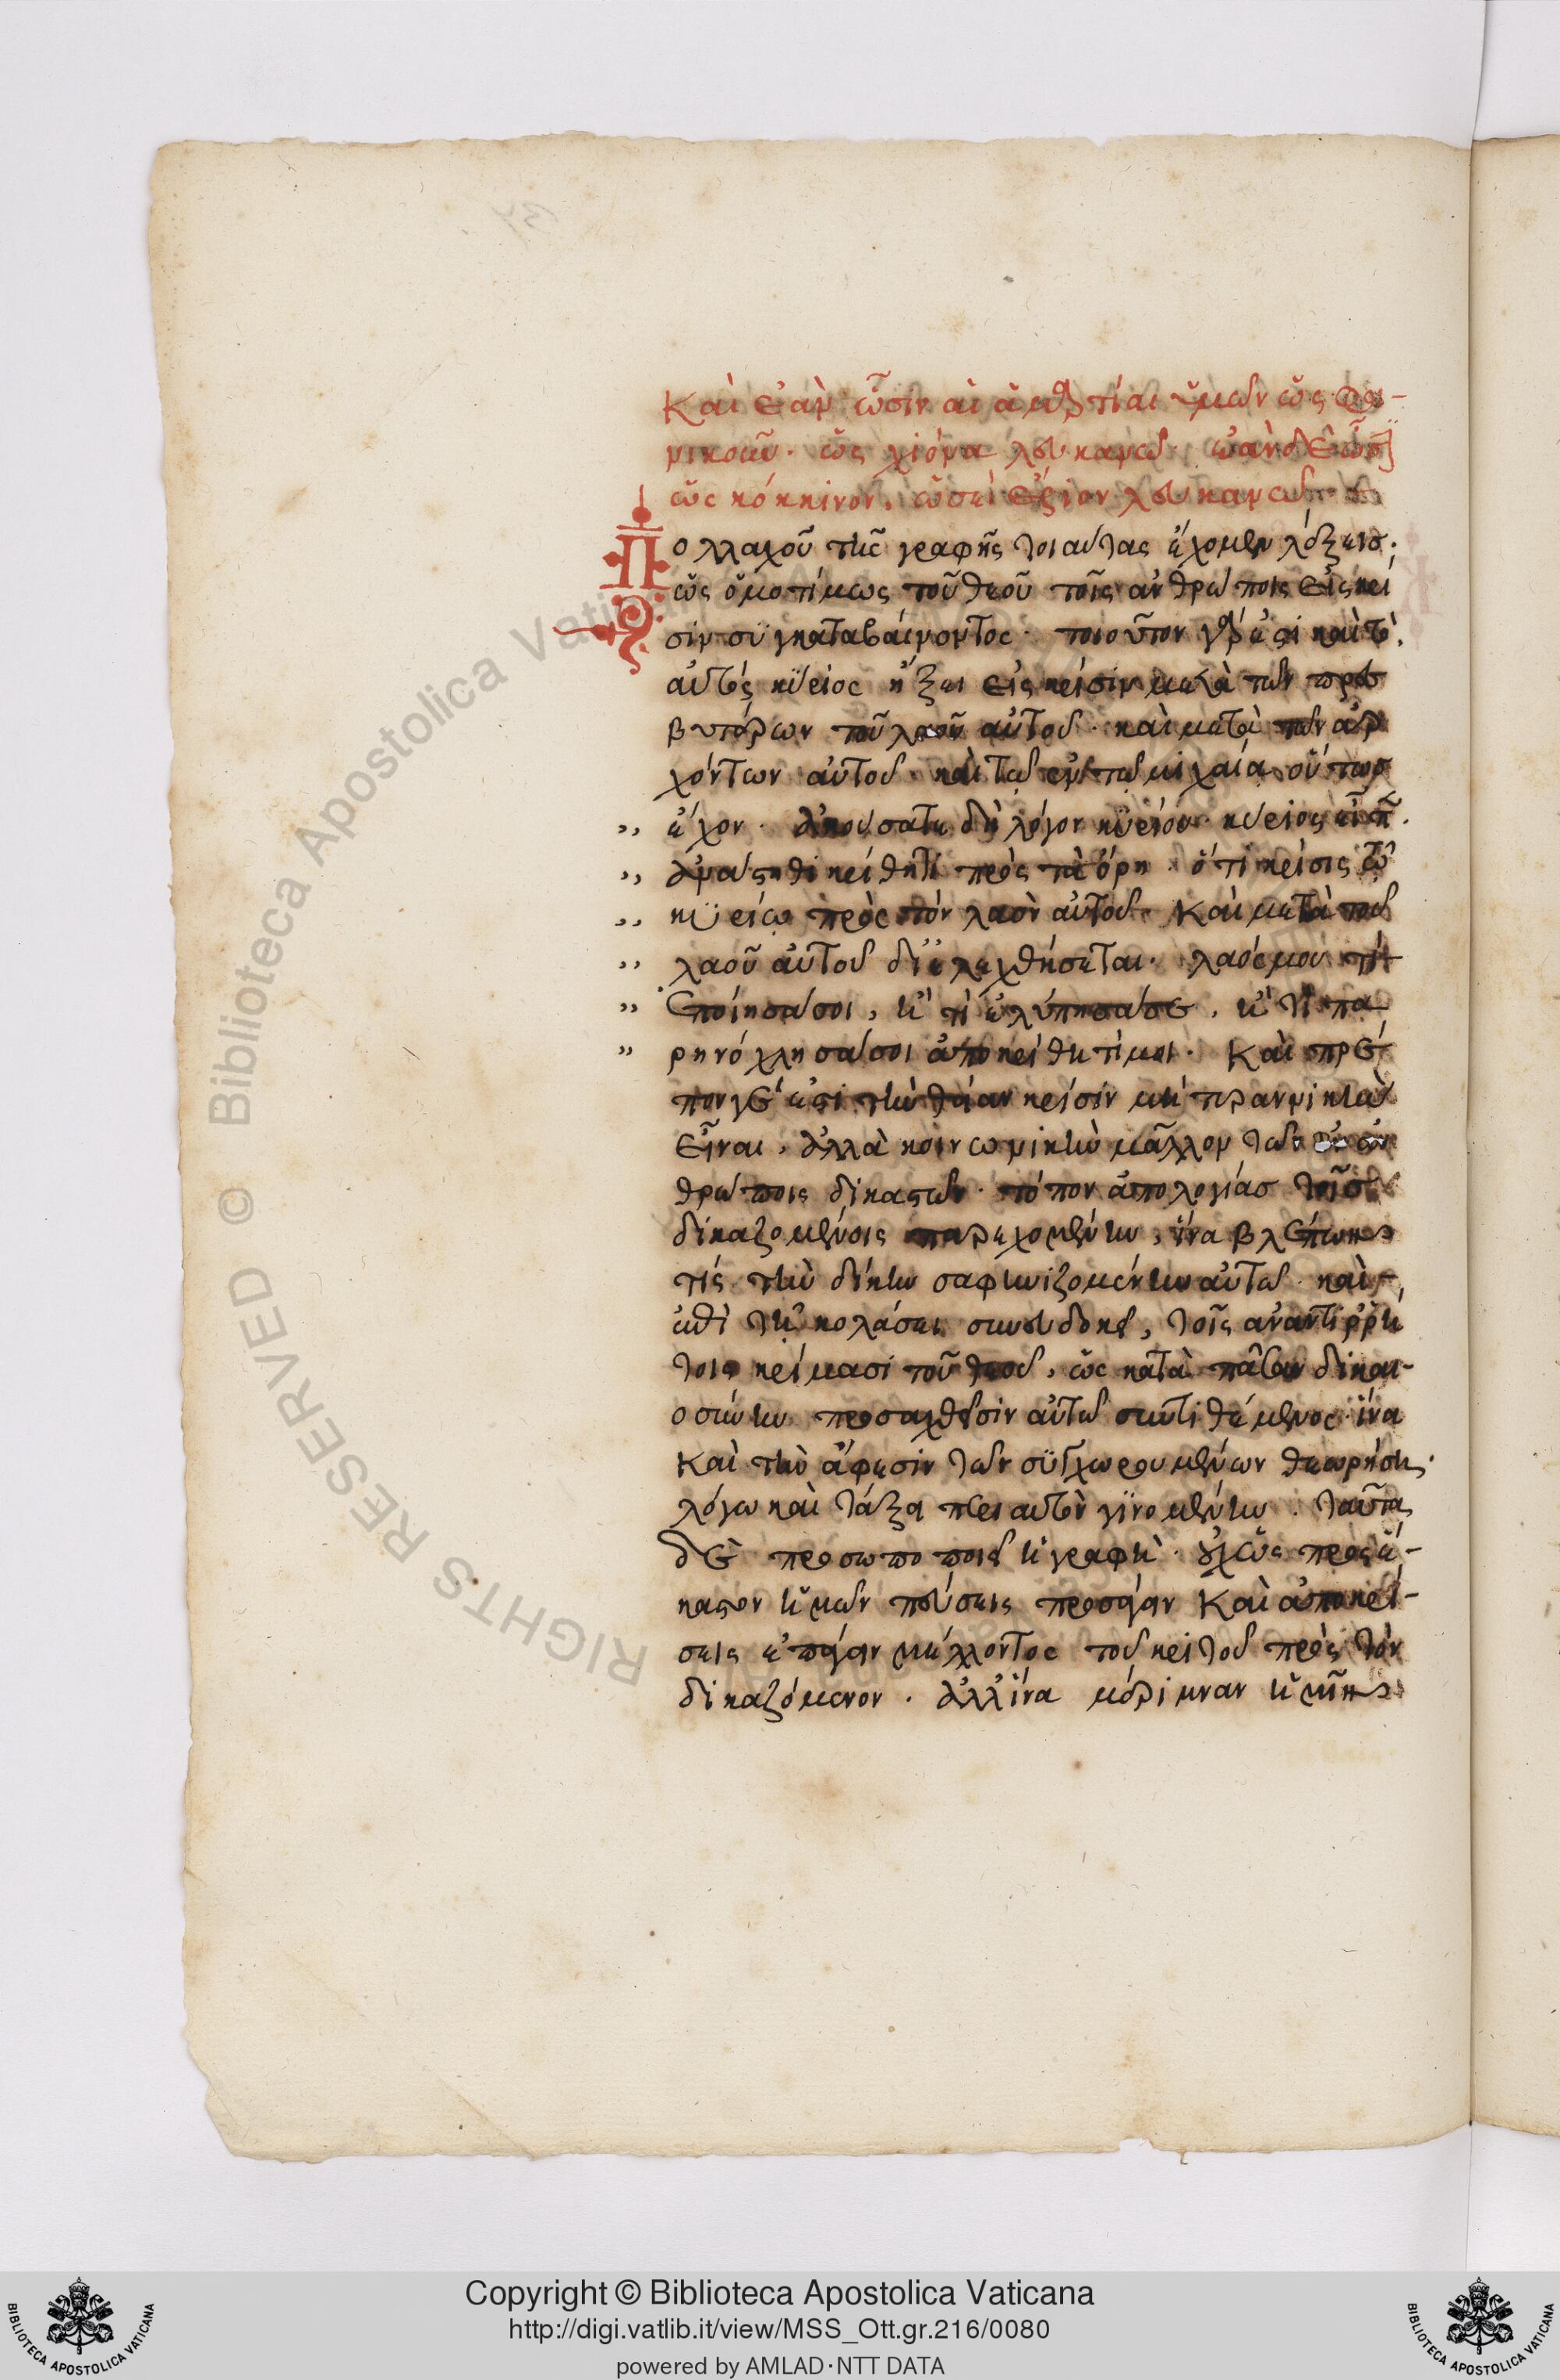 Καὶ ἐὰν ὦσιν αἱ ἁμαρτίαι ὑμῶν ὡς φοι-
νικοῦν· ὡς χιόνα λευκανῶ· ἐὰν δὲ ὦσι
ὡς κόκκινον, ὡσεὶ ἔριον λευκανῶ
Πολλαχοῦ τῆς γραφῆς τοιαύτας ἔχομεν λέξεις·
ὡς ὁμοτίμως τοῦ θεοῦ τοῖς ἀνθρώποις εἰς κρί
σιν συγκαταβαίνοντος· τοιοῦτον γάρ ἐστι καὶ τὸ,
αὐτὸς κύριος ἥξει εἰς κρίσιν μετὰ τῶν πρεσ
βυτέρων τοῦ λαοῦ αὐτοῦ· καὶ μετὰ τῶν ἀρ
χόντων αὐτοῦ· καὶ τὸ ἐν τῷ μιχαία οὕτως
ἔχον· ἀκούσατε δὴ λόγον κυρίου· κύριος εἶπεν·
ἀνάστηθι κρίθητι πρὸς τὰ ὄρη· ὅτι κρίσις τῷ
κυρίῳ πρὸς τὸν λαὸν αὐτοῦ· Καὶ μετὰ τοῦ
λαοῦ αὐτοῦ διελεχθήσεται· λαός μου τί
ἐποίησά σοι, ἢ τί ἐλύπησά σε, ἢ τί πα
ρηνόχλησά σοι ἀποκρίθητί μοι· Καὶ πρέ
πον γέ ἐστι τὴν θείαν κρίσιν μὴ τυραννικὴν
εἶναι, ἀλλὰ κοινωνικὴν μᾶλλον τῶν ἐν ἀν
θρώποις δικαστῶν· τόπον ἀπολογίας τοῖς
δικαζομένοις παρεχομένην, ἵνα βλέπων
τίς τὴν δίκην σαφηνιζομένην αὐτῷ· καὶ
ἐπὶ τῇ κολάσει συνευδοκεῖ, τοῖς ἀναντιρρή
τοις κρίμασι τοῦ θεοῦ, ὡς κατὰ πᾶσαν δικαι-
οσύνην προσαχθεῖσιν αὐτῷ συντιθέμενος· ἵνα
καὶ τὴν ἄφεσιν τῶν συγχωρουμένων θεωρήσῃ·
λόγω καὶ τάξει περὶ αὐτὸν γινομένην· ταῦτα
δὲ προσωποποιεῖ ἡ γραφή· οὐχ ὡς πρὸς ἕ-
καστον ἡμῶν πεύσεις προσάγειν Καὶ ἀποκρί-
σεις ἐπάγειν μέλλοντος τοῦ κριτοῦ πρὸς τὸν
δικαζόμενον· ἀλλ' ἵνα μέριμναν ἡμῖν
Copyright © Biblioteca Apostolica Vaticana
http://digi.vatlib.it/view/MSS_Ott.gr.216/0080
powered by AMLAD·NTT DATA
BIBLIOTECA APOSTOLICA VATICANA
BIBLIOTECA APOSTOLICA VATICANA
RIGHTS RESERVED © Biblioteca Apostolica Vaticana